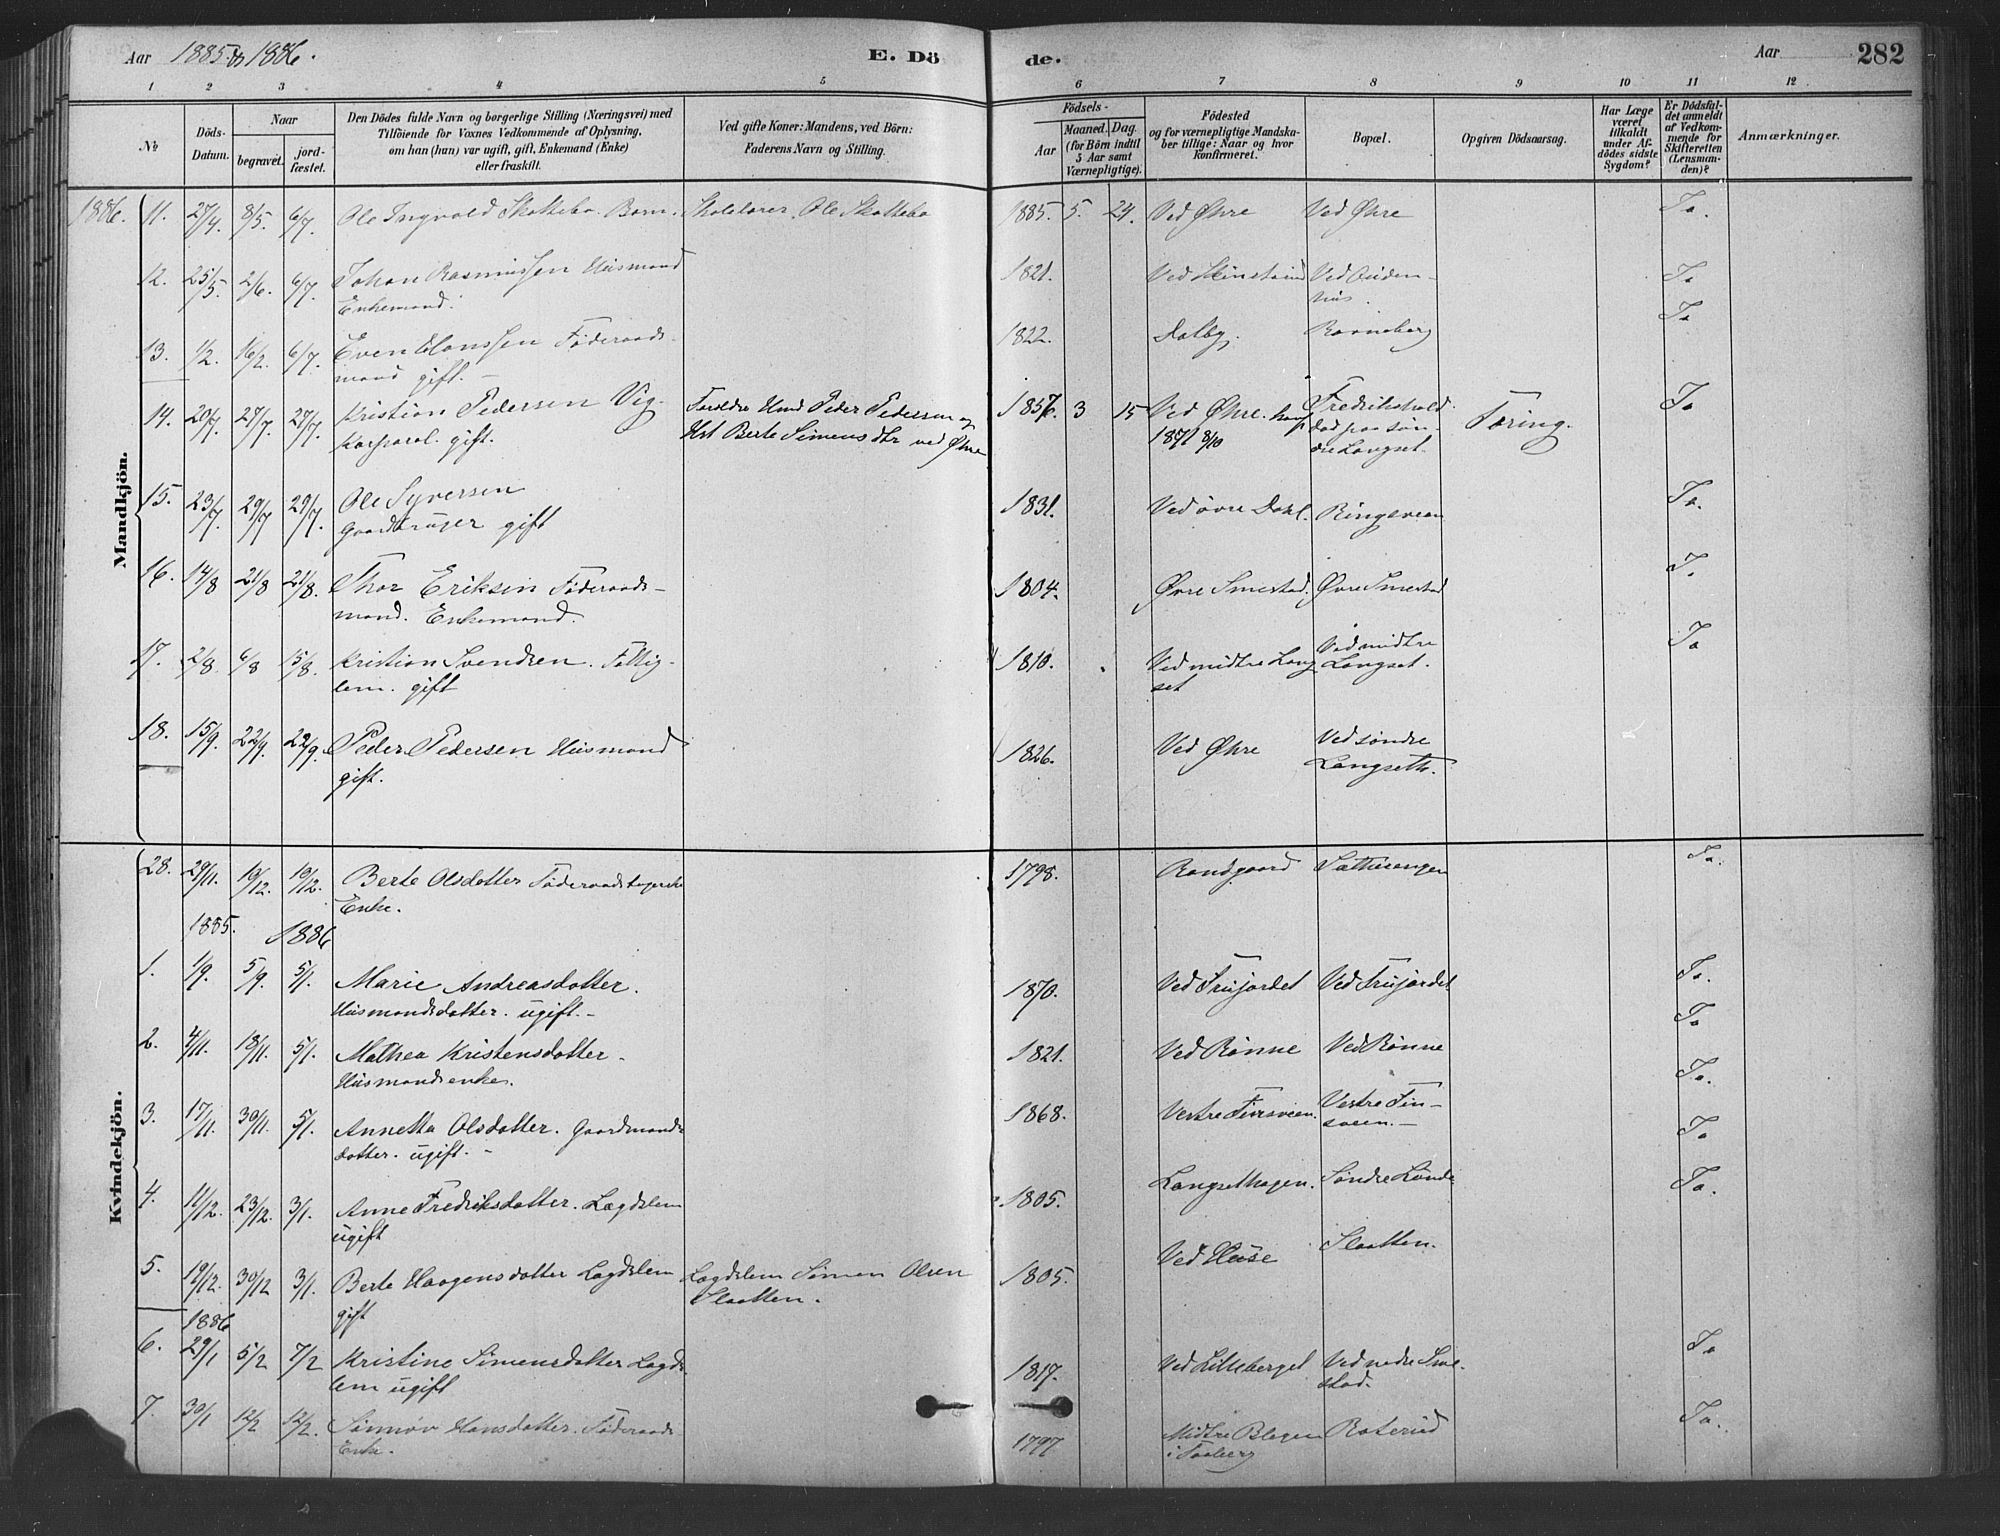 Aar 1885 og 1886.
E. Dö
de.
Aar
282
1 2 3 4 5
6 7 8 9 10 11 12
No
Döds-
Datum.
Naar
begravet.
jord-
fæstet.
Den Dödes fulde Navn og borgerlige Stilling (Næringsvei) med
Tilföiende for Voxnes Vedkommende af Oplysning,
om han (hun) var ugift, gift, Enkemand (Enke)
eller fraskilt.
Ved gifte Koner: Mandens, ved Börn:
Faderens Navn og Stilling.
Födsels-
Aar
Maaned. Dag.
(for Börn indtil
5 Aar samt
Værnepligtige).
Födested
og for værnepligtige Mandska-
ber tillige: Naar og hvor
konfirmeret.
Bopæl.
Opgiven Dödsaarsag.
Har Læge
været
tilkaldt
under Af-
dödes sidste
Sygdom?
Er Dödsfal-
det anmeldt
af Vedkom-
mende for
Skifteretten
(Lensman-
den)?
Anmærkninger.
Mandkjön.
1886. 11. 27/4 8/5. 6/7. Ole Ingvald Skattebo. Barn. Skolelærer. Ole Skattebo 1885. 5. 24. Ved Øhre Ved Øhre Ja.
12. 25/5. 2/6. 6/7. Johan Rasmussen Husmand
Enkemand.
1821. Ved Skinstuind Ved Auden-
hus.
Ja
13. 1/2. 16/2. 6/7. Even Hanssen Föderaads-
mand gift.
1822. Dalby. Ravneberg Ja
14. 20/7. 27/7. 27/7. Kristian Pedersen Vig-
Korporal. gift.
Foreldre Husmd Peder Pedersen og
Hst Berte Simensdtr ved Øhre
1857. 3 15 Ved Øhre. konf
1871 8/10
Fredrikshald
død paa Søn-
dre Langset.
Tæring. Ja
15. 23/7. 29/7 29/7. Ole Syversen
Gaardbruger gift
1831. Ved øvre Dahl. Ringsveen Ja.
16. 14/8 21/8 21/8. Thor Eriksen Föderaads-
mand. Enkemand.
1804. Øvre Smestad. Øvre Smestad J.
17. 2/8. 6/8 15/8. Kristian Svendsen. Fattig-
lem. gift
1810. Ved midtre Lang
set
Ved midtre
Langset.
Ja
18. 15/9. 22/9. 22/9. Peder Pedersen Husmand
gift.
1826. Ved Øhre Ved søndre
Langseth.
Kvindekjön.
28. 29/11. 10/12. 10/12. Berte Olsdotter Föderaadstagerske
Enke.
1798. Randgaard Ja.
1885. 1886
1. 1/9. 5/9. 5/1. Marie Andreasdotter.
Husmandsdatter. ugift.-
1870. Ved Frujordet Ved Frujordet. Ja.
2. 4/11. 18/11. 5/1. Mathea Kristensdotter-
Husmandsenke.
1821. Ved Rønne Ved Rønne Ja
3. 17/11. 30/11. 5/1. Annetta Olsdotter. Gaardmands
datter. ugift.-
1868. Vestre Finsveen. Vestre Fin-
sveen.-
Ja.
4. 11/12. 23/12. 3/1. Anne Fredriksdotter. Lægdslem
ugift
1805. Langsethagen. Søndre Lunde Ja
5. 19/12. 30/12 3/1. Berte Haagensdotter Lægdslem
gift
Lægdslem Simen Olsen
Slaatten.
1805. Ved Huse Slaatten. Ja.
1886
6. 29/1 5/2 7/2 Kristine Simensdotter Lægds-
lem ugift
1817. Ved Lilleberget Ved nedre Sme-
stad.
Ja
7. 30/1 12/2 12/2. Sønnøv Hansdotter. Föderaads
Enke.
1797 Midtre Blegen
i Faaberg
Roterud Ja.